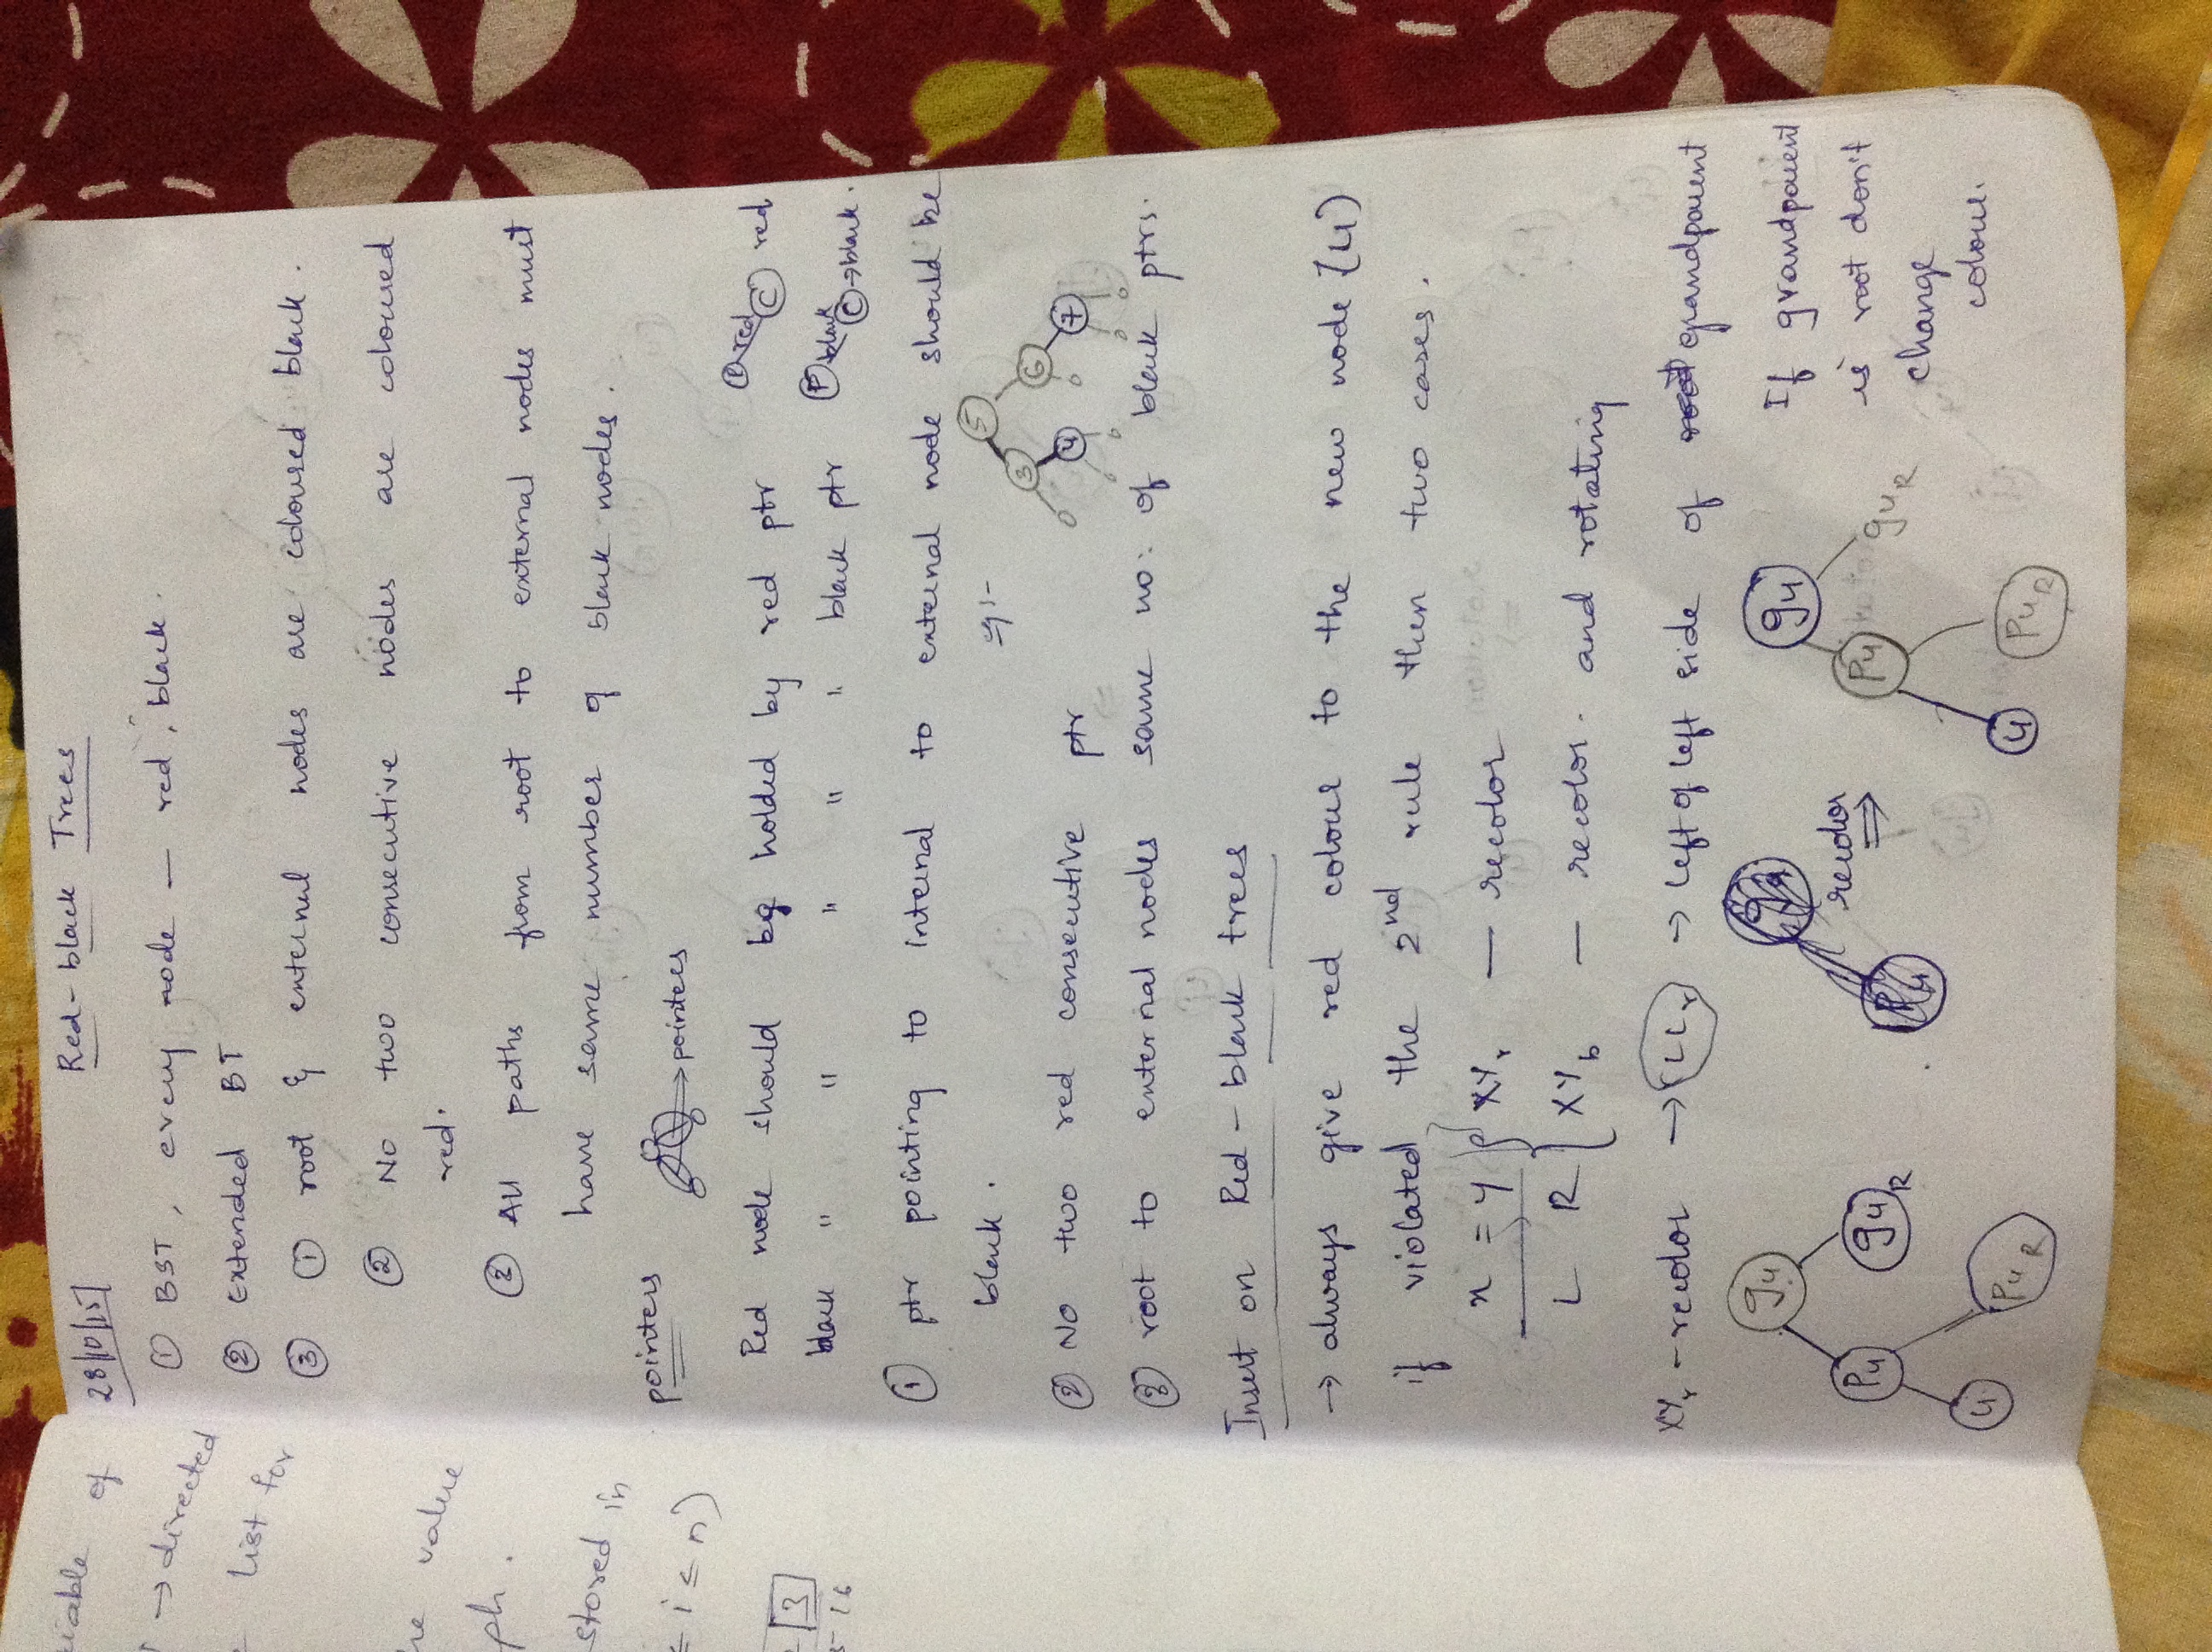 riable of
→ directed
list for
he value
ph.
stored in
≤ i ≤ n)
3
15 16
28/10/15
Red-black Trees
① BST, every node — red, black.
② Extended BT
③ ① root & external nodes are coloured black.
② No two consecutive nodes are coloured
red.
③ All paths from root to external nodes must
have same number of black nodes.
pointers → pointers
Red node should be holded by red ptr P red C red
black " " " " " black ptr P black C → black.
① ptr pointing to internal to external node should be
black. eg:-
5
3 6
4 7
② No two red consecutive ptr
③ root to external nodes same no: of black ptrs.
Insert on Red-black trees
→ always give red colour to the new node (u)
if violated the 2nd rule then two cases.
x = y } XYr — recolor
L R { XYb — recolor and rotating
XYr - recolor → LLr → left of left side of grandparent
gu recolor ⇒ gu If grandparent
Pu guR Pu guR is root don't
u PuR u PuR change
colour.